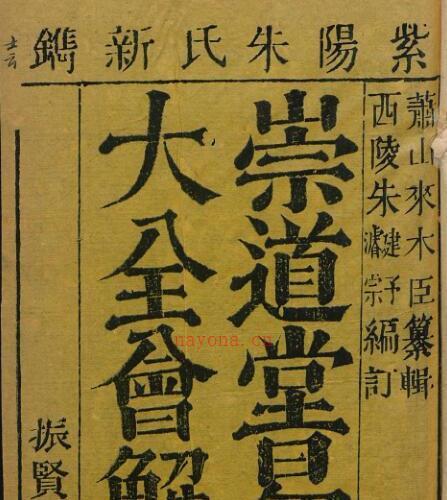 紫陽朱氏新鐫
蕭山來木臣纂輯
西陵朱建予濬宗編訂
崇道堂易
大全會解
振賢
nayona.cn